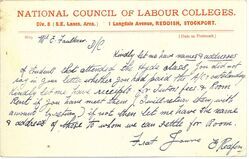 NATIONAL COUNCIL OF LABOUR COLLEGES.
Div. 8 (S.E. Lancs. Area.) 1 Langdale Avenue, REDDISH, STOCKPORT.
(Date as Postmark).
W E
Kindly let me have names & addresses
of Students that attended the class, you did not
say in your letter whether you had paid the A/c's outstanding
Kindly let me have receipts for Tutors fees & Room
Rent if you have met them (I must return them with
amount, if not then let me have the name
& address of to whom we can settle for Room.
Frat Yours
E